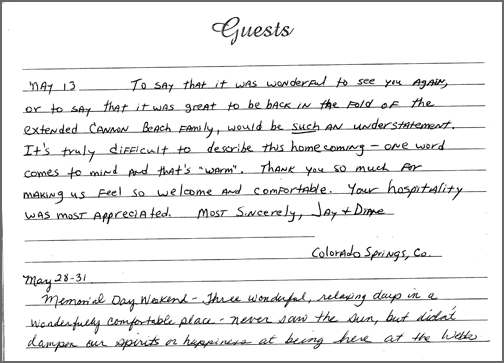 Guests
May 13 To say that it was wonderful to see you again,
or to say that it was great to be back in the fold of the
extended Cannon Beach family, would be such an understatement.
It's truly difficult to describe this homecoming - one word
comes to mind and that's "warm". Thank you so much for
making us feel so welcome and comfortable. Your hospitality
was most appreciated. Most Sincerely, Jay + Diane
Colorado Springs, Co.
May 28-31
Memorial Day Weekend - Three wonderful, relaxing days in a
wonderfully comfortable place - never saw the sun, but didn't
dampen our spirits or happiness at being here at the